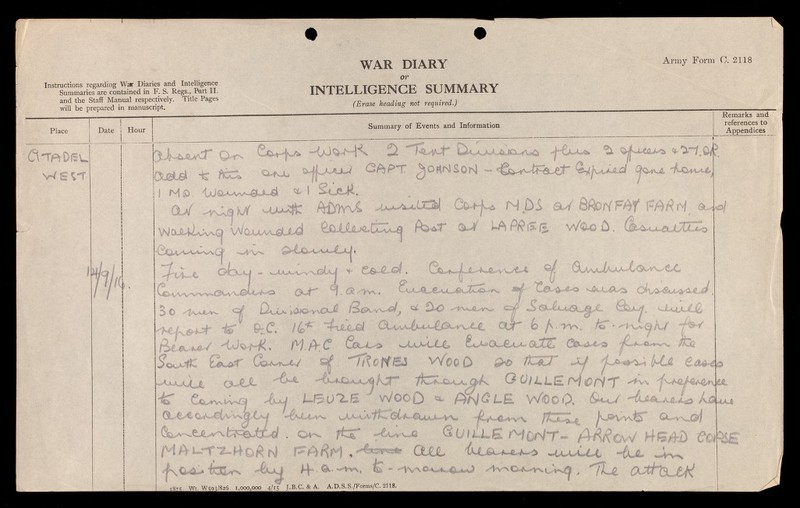 WAR DIARY
or
INTELLIGENCE SUMMARY
(Erase heading not required.)
Army Form C. 2118
Instructions regarding War Diaries and Intelligence
Summaries are contained in F. S. Regs., Part II.
and the Staff Manual respectively. Title Pages
will be prepared in manuscript.
Place
Date
Hour
Summary of Events and Information
Remarks and
references to
Appendices
CITADEL
WEST
absent on Corps Work 2 Tent Divisions plus 2 officers & 27.OR.
add to this one officer CAPT JOHNSON - Contract Expired gone home,
1 M.O. Wounded & 1 Sick.
At night with ADMS visited Corps M.DS at BRONFAY FARM. and
Walking Wounded Collecting Post at LAPREE WOOD. Casualties
Coming in slowly.
14/9/16.
Fine day - windy & cold. Conference of Ambulance
Commanders at 9.a.m. Evacuation of Cases was discussed.
30 men of Divisional Band, & 20 men of Salvage Coy. will
report to O.C. 16th Field Ambulance at 6 p.m. to-night for
Bearer Work. M.A.C Cars will Evacuate cases from the
South East Corner of TRONES WOOD so that if possible cases
will all be brought through GUILLEMONT in preference
to Coming by LEUZE WOOD & ANGLE WOOD. Our bearers have
accordingly been withdrawn from these points and
Concentrated. on the line GUILLEMONT - ARROW HEAD COPSE
MALTZ-HORN FARM. all bearers will be in
position by 4 a.m. to-morrow morning. The attack
1875 Wt. W593/826 1,000,000 4/15 J.B.C. & A. A.D.S.S./Forms/C. 2118.